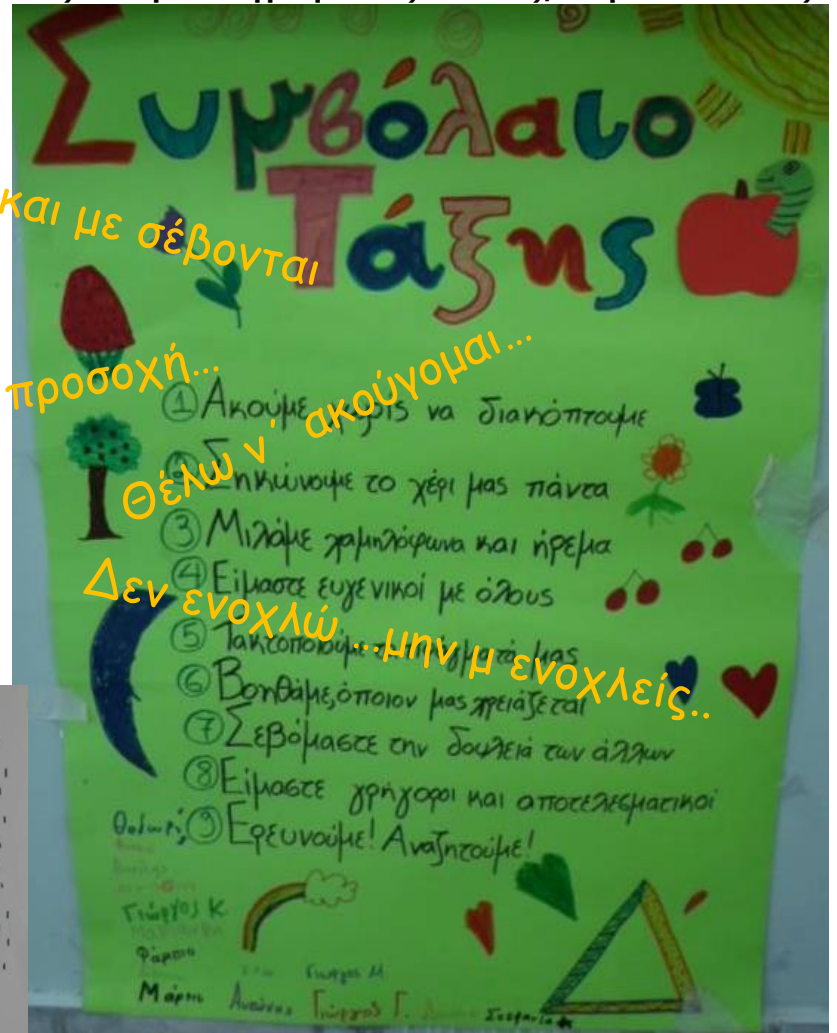 Συμβόλαιο
Τάξης
και με σέβονται
προσοχή...
Θέλω ν΄ ακούγομαι...
Δεν ενοχλώ ...μην μ ενοχλείς..
① Ακούμε χωρίς να διακόπτουμε
② Σηκώνουμε το χέρι μας πάντα
③ Μιλάμε χαμηλόφωνα και ήρεμα
④ Είμαστε ευγενικοί με όλους
⑤ Τακτοποιούμε τα πράγματά μας
⑥ Βοηθάμε, όποιον μας χρειάζεται
⑦ Σεβόμαστε την δουλειά των άλλων
⑧ Είμαστε γρήγοροι και αποτελεσματικοί
⑨ Ερευνούμε! Αναζητούμε!
Γιώργος Κ.
Γιώργος Μ.
Γιώργος Γ. Στεφανία